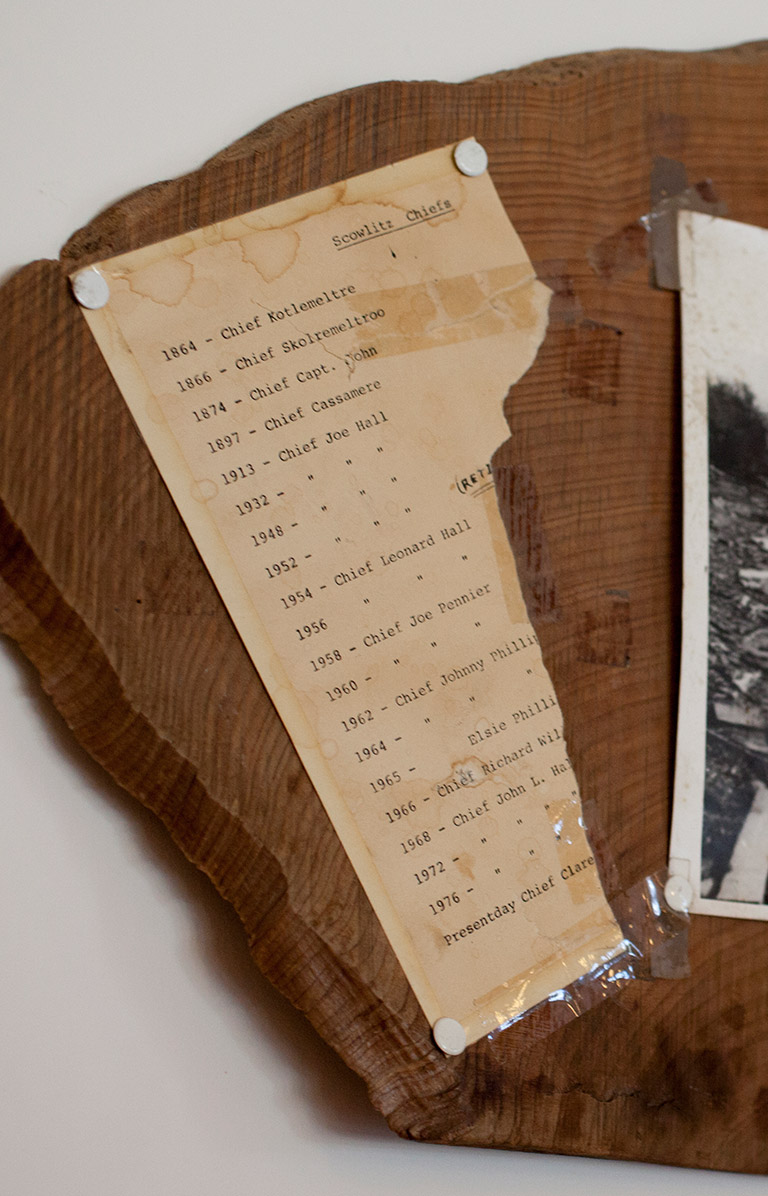 Scowlitz Chiefs
1864 - Chief Kotlemeltre
1866 - Chief Skolremeltroo
1874 - Chief Capt. John
1897 - Chief Cassamere
1913 - Chief Joe Hall
1932 - " " "
1948 - " " " (RETI
1952 - " " "
1954 - Chief Leonard Hall
1956 " " "
1958 - Chief Joe Pennier
1960 - " " "
1962 - Chief Johnny Phillip
1964 - " " "
1965 - Elsie Philli
1966 - Chief Richard Wil
1968 - Chief John L. Hal
1972 - " " " "
1976 - " " "
Presentday Chief Clare